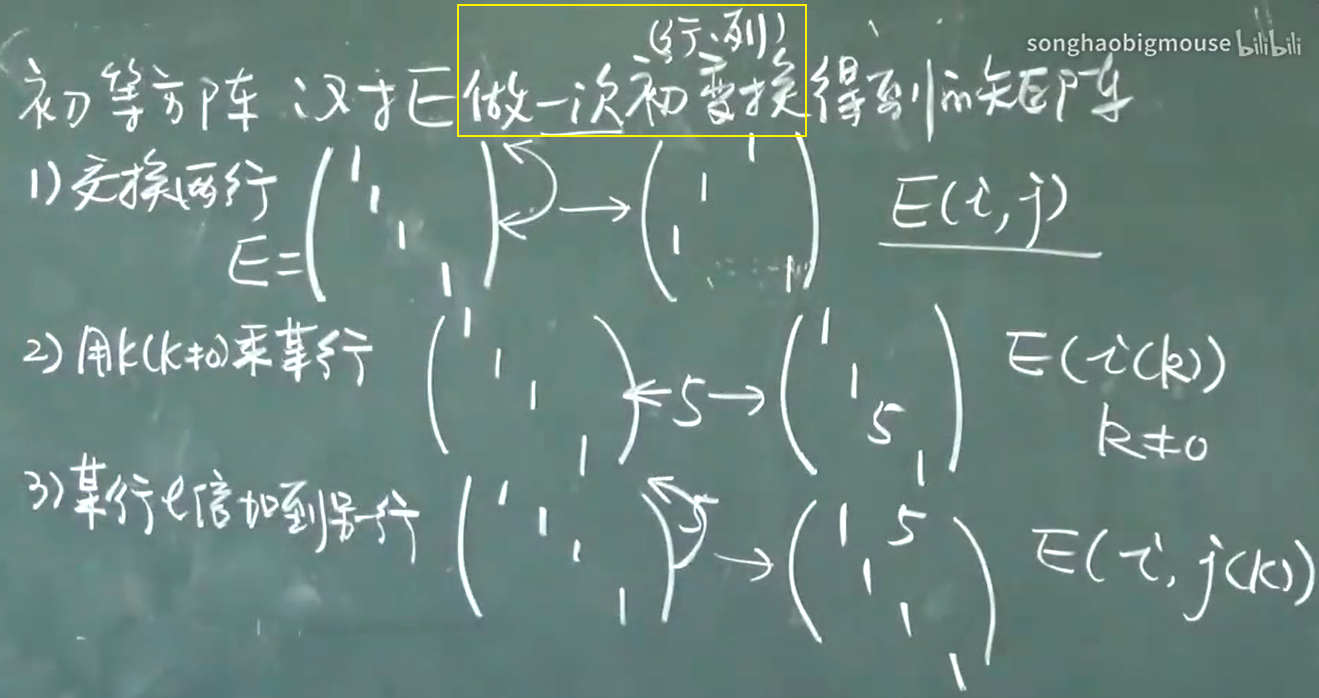 (行、列)
songhaobigmouse bilibili
初等方阵 汉对E做一次初变换得到的矩阵
1) 交换两行
E= ( 1 1 1 1 ) → ( 1 1 1 1 ) E(i,j)
2) 用k(k≠0)乘某行 ( 1 1 1 1 ) ←5→ ( 1 1 5 1 ) E(i(k))
k≠0
3) 某行l倍加到另一行 ( 1 1 1 1 ) 5 → ( 1 5 1 1 1 ) E(i,j(k))